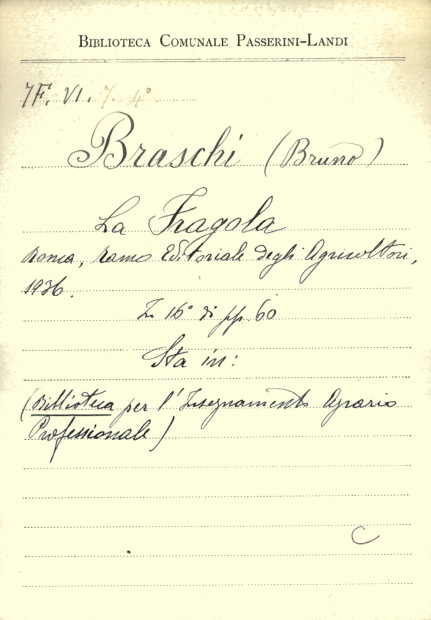 BIBLIOTECA COMUNALE PASSERINI-LANDI
7F. VI. 7. 4°
Braschi (Bruno)
La Fragola
Roma, Ramo Editoriale degli Agricoltori,
1936.
In 16° di pp. 60
Sta in:
(Biblioteca per l'Insegnamento Agrario
Professionale)
C